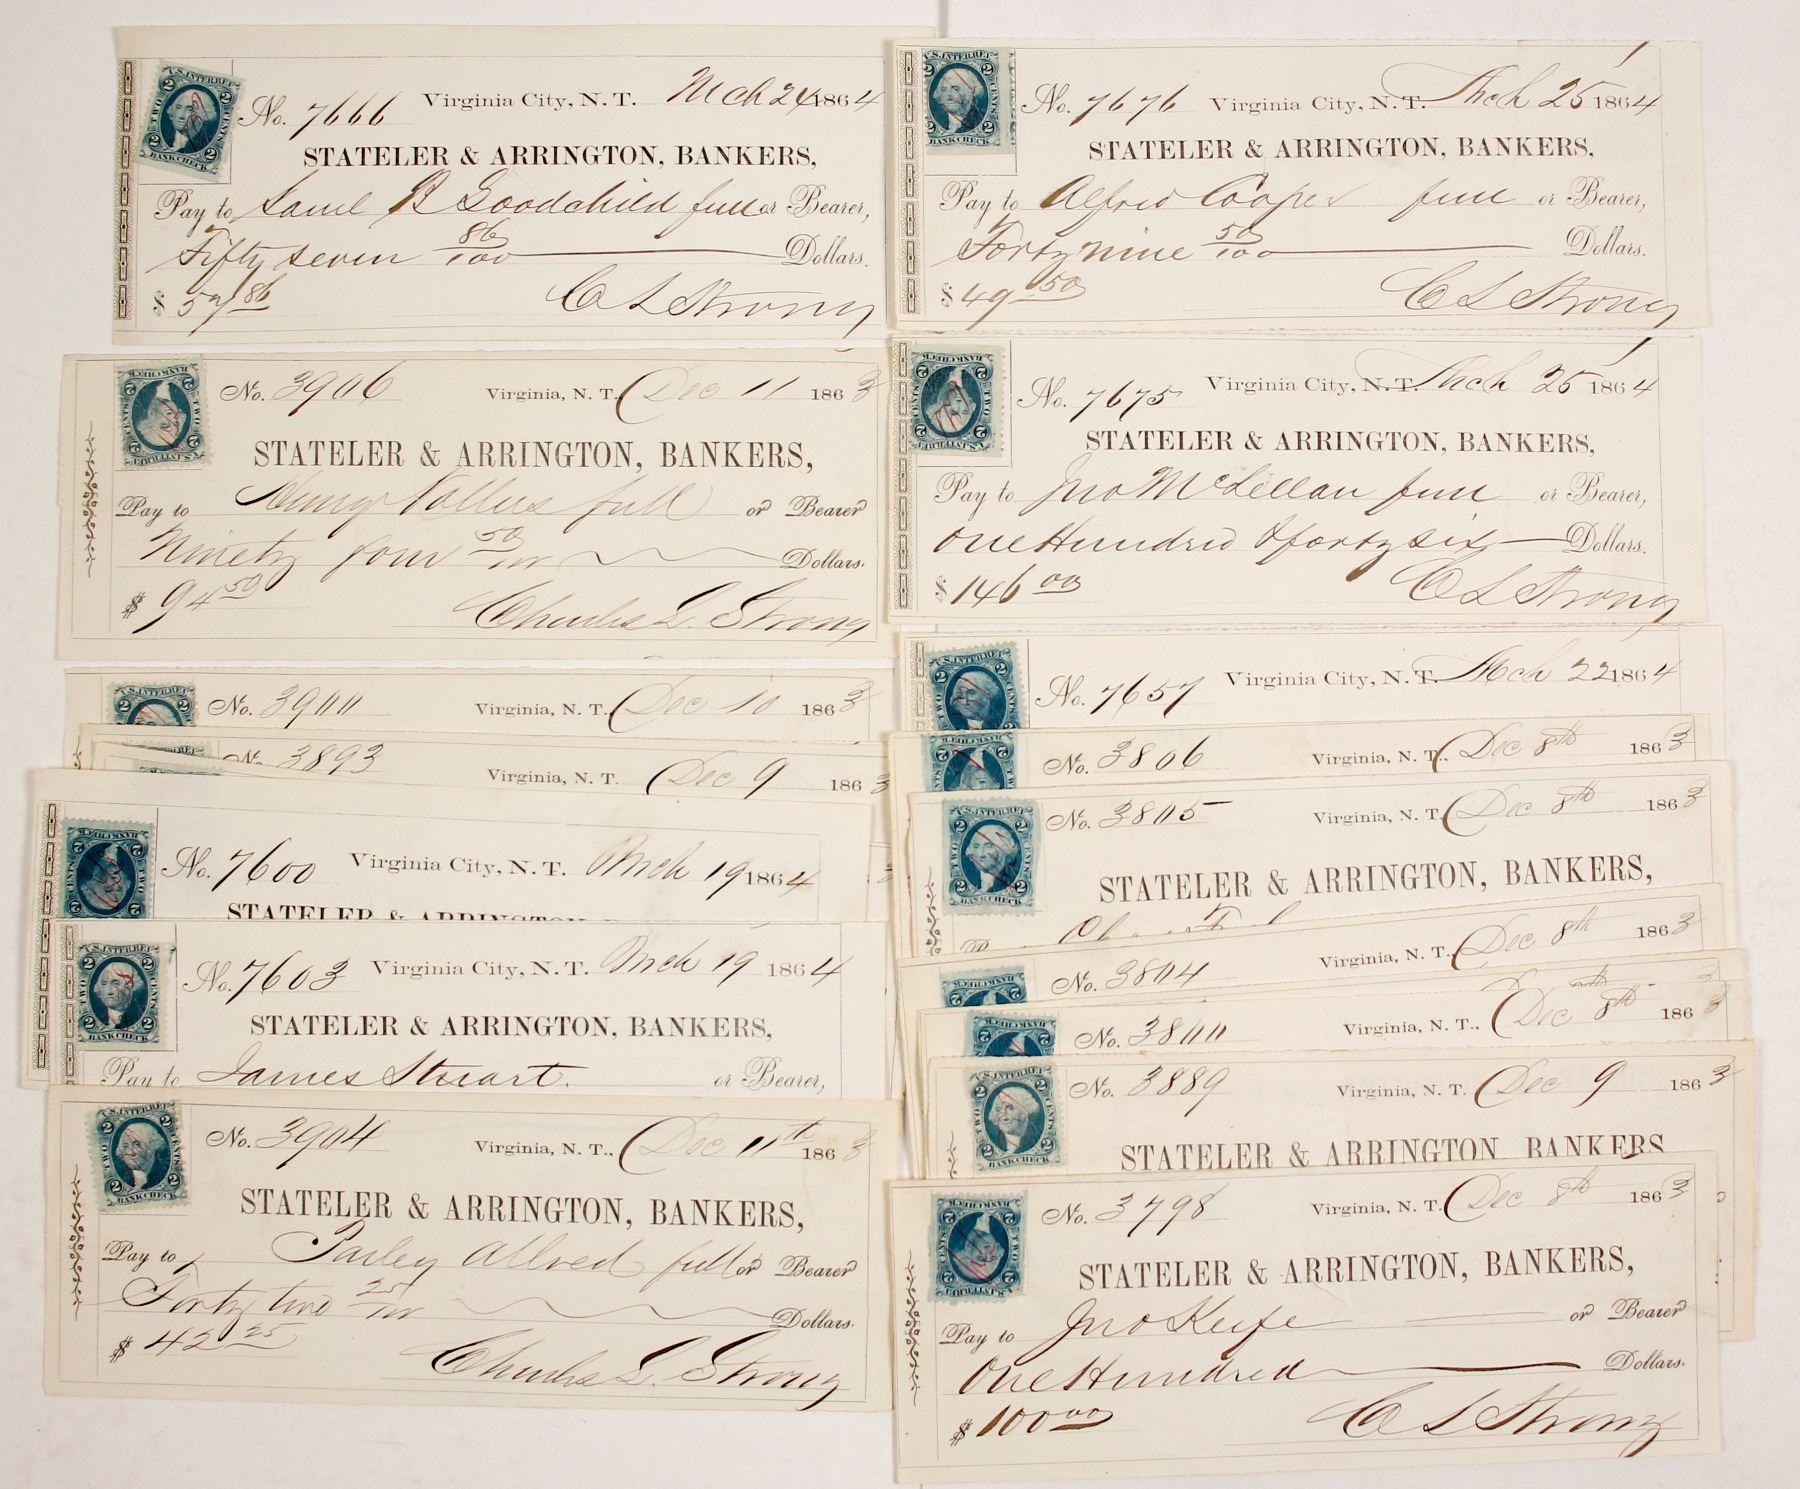 U.S. INTER. REV.
TWO CENTS
BANK CHECK
No. 7666 Virginia City, N. T. Mch 24 1864
STATELER & ARRINGTON, BANKERS,
Pay to Saml B Goodchild full or Bearer,
Fifty seven 86/100 Dollars.
$ 57 86
C L Strong
No. 3906 Virginia, N. T. Dec 11 1863
STATELER & ARRINGTON, BANKERS,
Pay to Henry full or Bearer
Ninety four 50/100 Dollars.
$ 94 50
Charles L. Strong
No. 3900 Virginia, N. T., Dec 10 1863
No. 3893 Virginia, N. T. Dec 9 1863
No. 7600 Virginia City, N. T. Mch 19 1864
STATELER & ARRINGTON
No. 7603 Virginia City, N. T. Mch 19 1864
STATELER & ARRINGTON, BANKERS,
Pay to James Stuart. or Bearer,
U.S. INTER. REV.
TWO CENTS
BANK CHECK
No. 3904 Virginia, N. T., Dec 11th 1863
STATELER & ARRINGTON, BANKERS,
Pay to Parley Allred full or Bearer
Forty two 25/100 Dollars.
$ 42 25
Charles L. Strong
No. 7676 Virginia City, N. T. Mch 25 1864
STATELER & ARRINGTON, BANKERS,
Pay to Alfred Cooper full or Bearer,
Forty nine 50/100 Dollars.
$ 49 50
C L Strong
No. 7675 Virginia City, N. T. Mch 25 1864
STATELER & ARRINGTON, BANKERS,
Pay to Jno McLellan full or Bearer,
One Hundred & forty six Dollars.
$ 146 00
C L Strong
No. 7657 Virginia City, N. T. Mch 22 1864
No. 3806 Virginia, N. T., Dec 8th 1863
No. 3805 Virginia, N. T. Dec 8th 1863
STATELER & ARRINGTON, BANKERS,
No. 3804 Virginia, N. T., Dec 8th 1863
No. 3800 Virginia, N. T., Dec 8th 1863
No. 3889 Virginia, N. T. Dec 9 1863
STATELER & ARRINGTON BANKERS
BANK CHECK
No. 3798 Virginia, N. T. Dec 8th 1863
STATELER & ARRINGTON, BANKERS,
Pay to Jno Keefe or Bearer
One Hundred Dollars.
$ 100 00
C L Strong